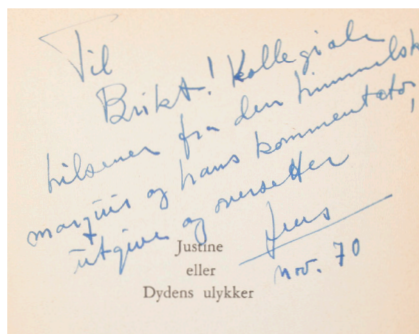 Til
Brikt! Kollegiale
hilsener fra den himmelsk
marquis og hans kommentator,
utgiver og oversetter
Jens
nov. 70
Justine
eller
Dydens ulykker